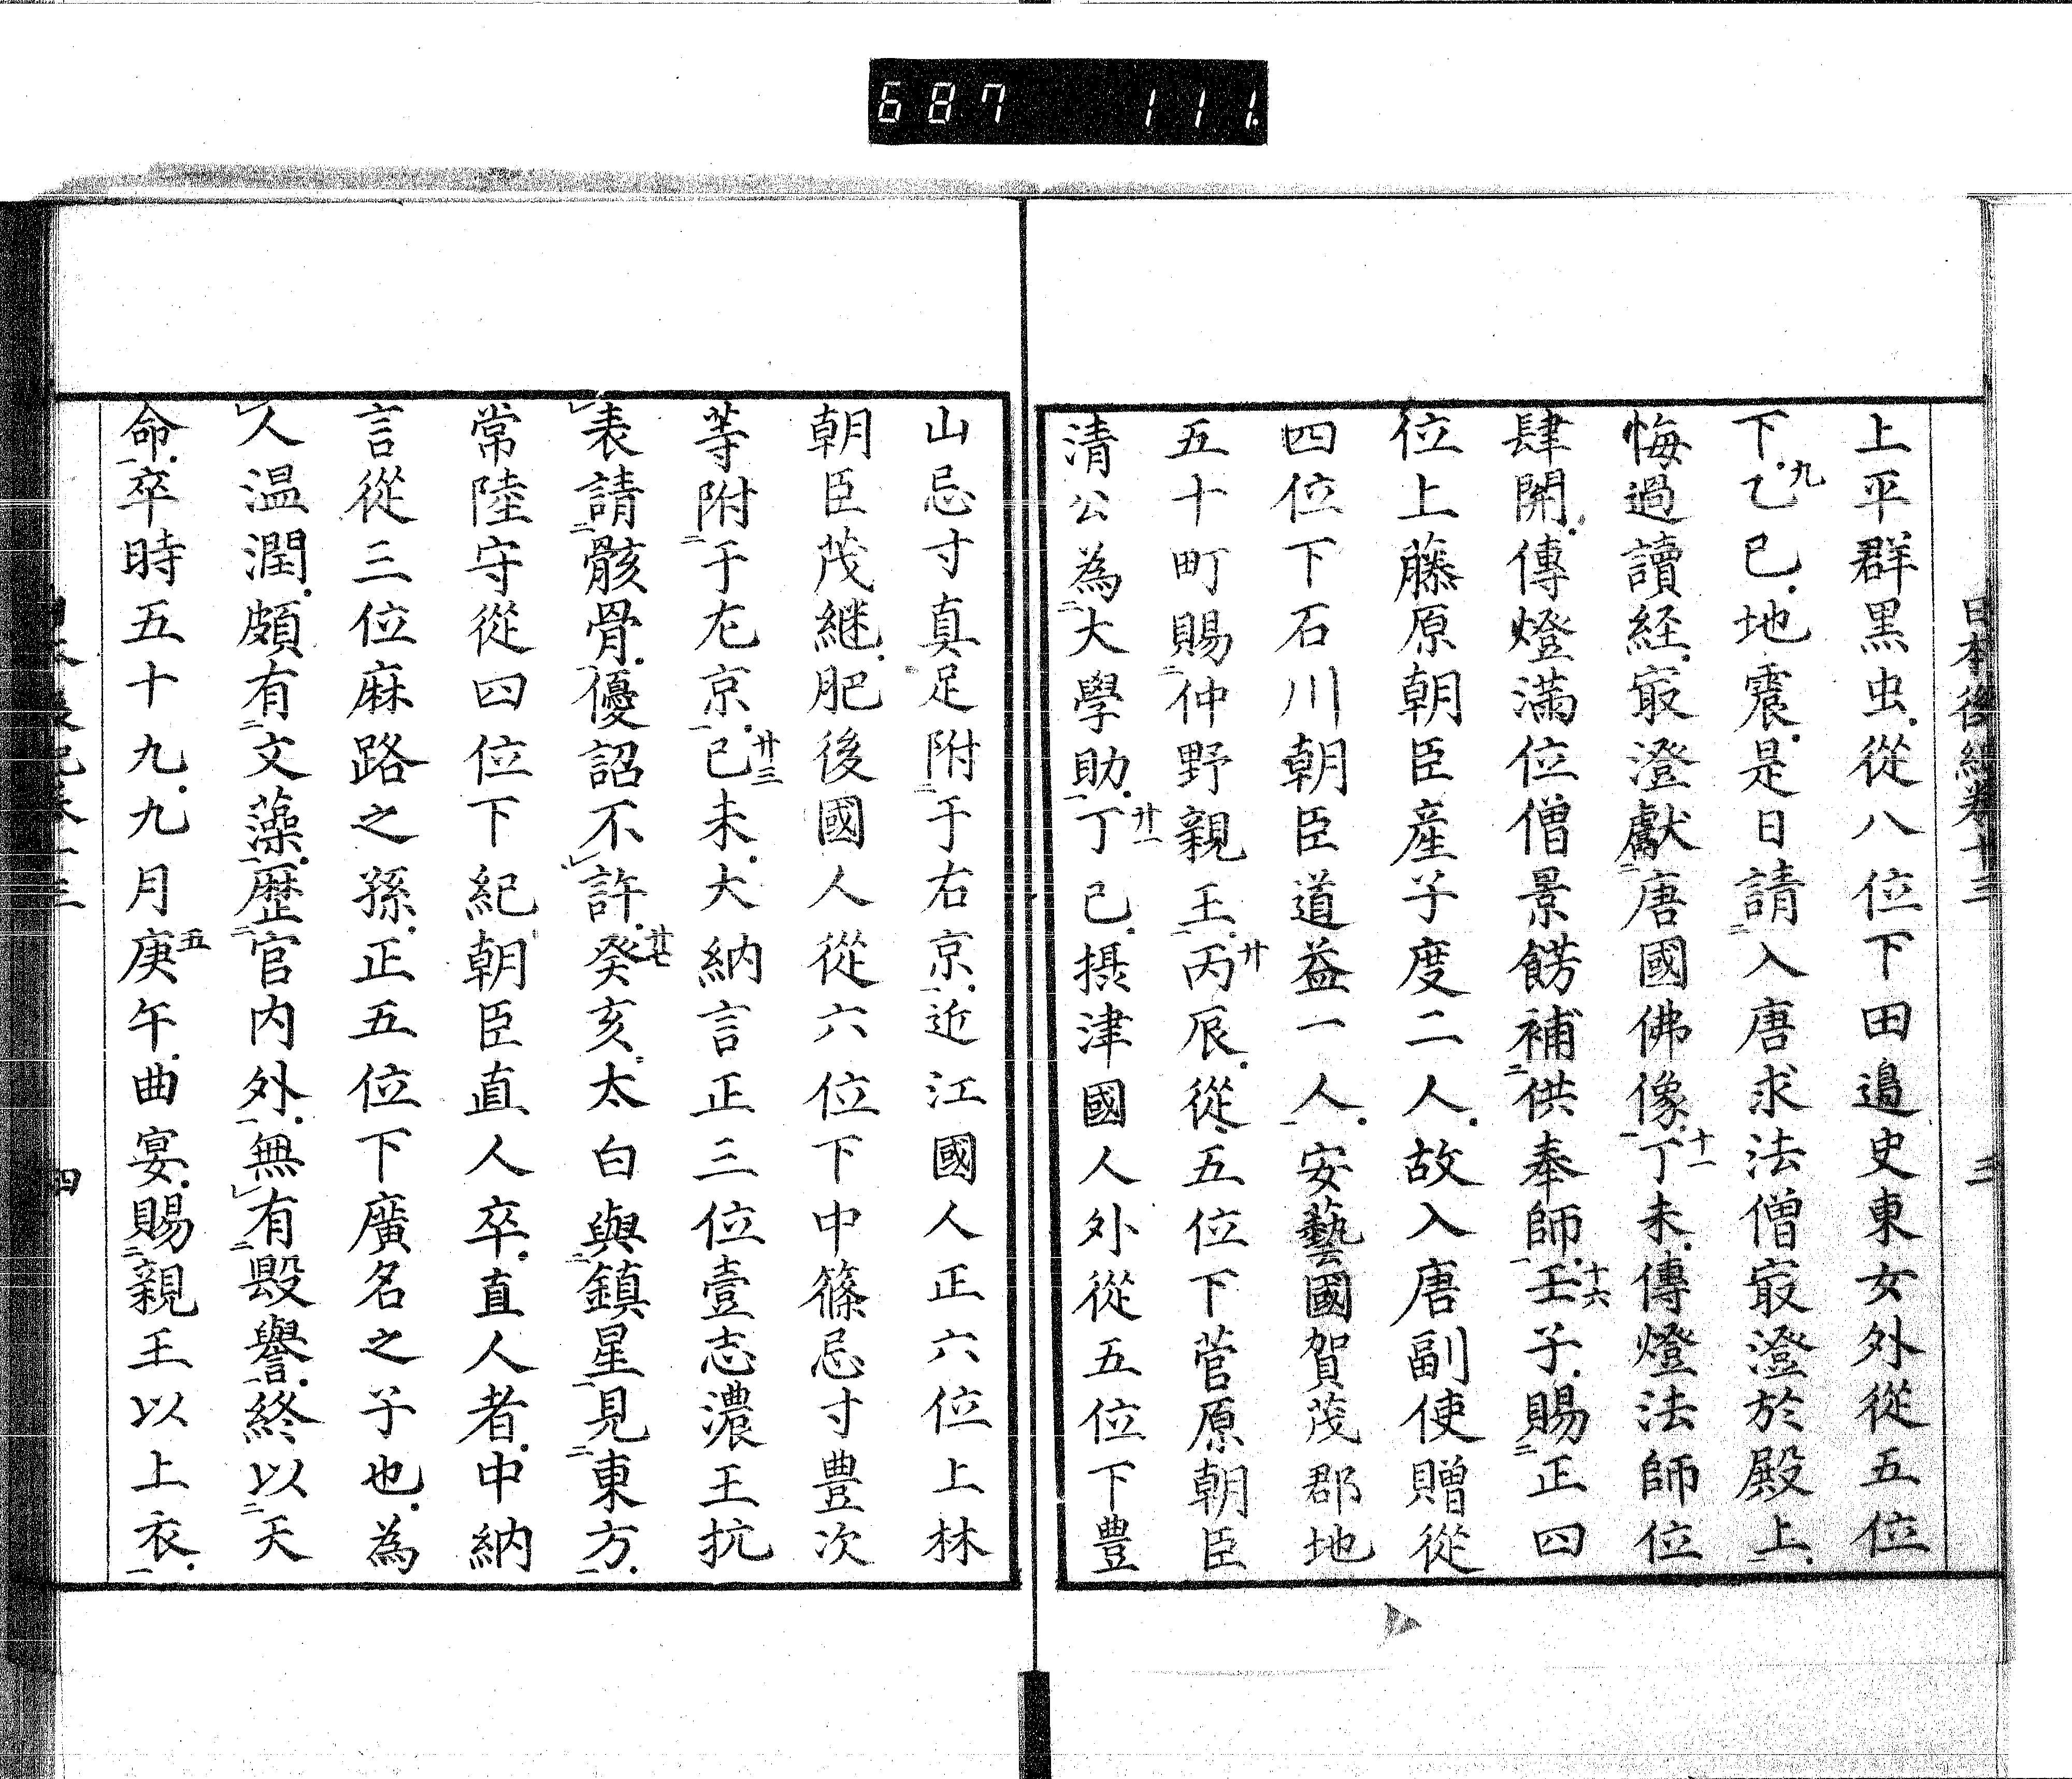 687 111
日本後紀卷十三 三
上平群黒虫從八位下田邉史東女外從五位
下乙九巳地震是日請入唐求法僧㝡澄於殿上
悔過讀経㝡澄獻唐國佛像丁十一未傳燈法師位
肆開傳燈滿位僧景餝補供奉師壬十六子賜正四
位上藤原朝臣産子度二人故入唐副使贈從
四位下石川朝臣道益一人安藝國賀茂郡地
五十町賜仲野親王丙廿辰從五位下菅原朝臣
清公為大學助丁廿一巳摂津國人外從五位下豊
山忌寸真足附于右京近江國人正六位上林
朝臣茂継肥後國人從六位下中篠忌寸豊次
等附于左京己廿三未大納言正三位壹志濃王抗
表請骸骨優詔不許癸廿七亥太白與鎮星見東方
常陸守從四位下紀朝臣直人卒直人者中納
言從三位麻路之孫正五位下廣名之子也為
人温潤頗有文藻歴官内外無有毀譽終以天
命卒時五十九九月庚五午曲宴賜親王以上衣
四